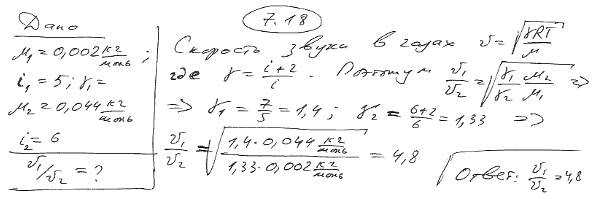 7.18
Дано
μ₁ = 0,002 кг/моль;
i₁ = 5; γ₁ =
μ₂ = 0,044 кг/моль
i₂ = 6
v₁/v₂ = ?
Скорость звука в газах v = √(γRT/μ)
где γ = (i+2)/i. Поэтому v₁/v₂ = √(γ₁/γ₂ μ₂/μ₁) =>
=> γ₁ = 7/5 = 1,4; γ₂ = (6+2)/6 = 1,33 =>
v₁/v₂ = √((1,4·0,044 кг/моль)/(1,33·0,002 кг/моль)) = 4,8
Ответ: v₁/v₂ = 4,8